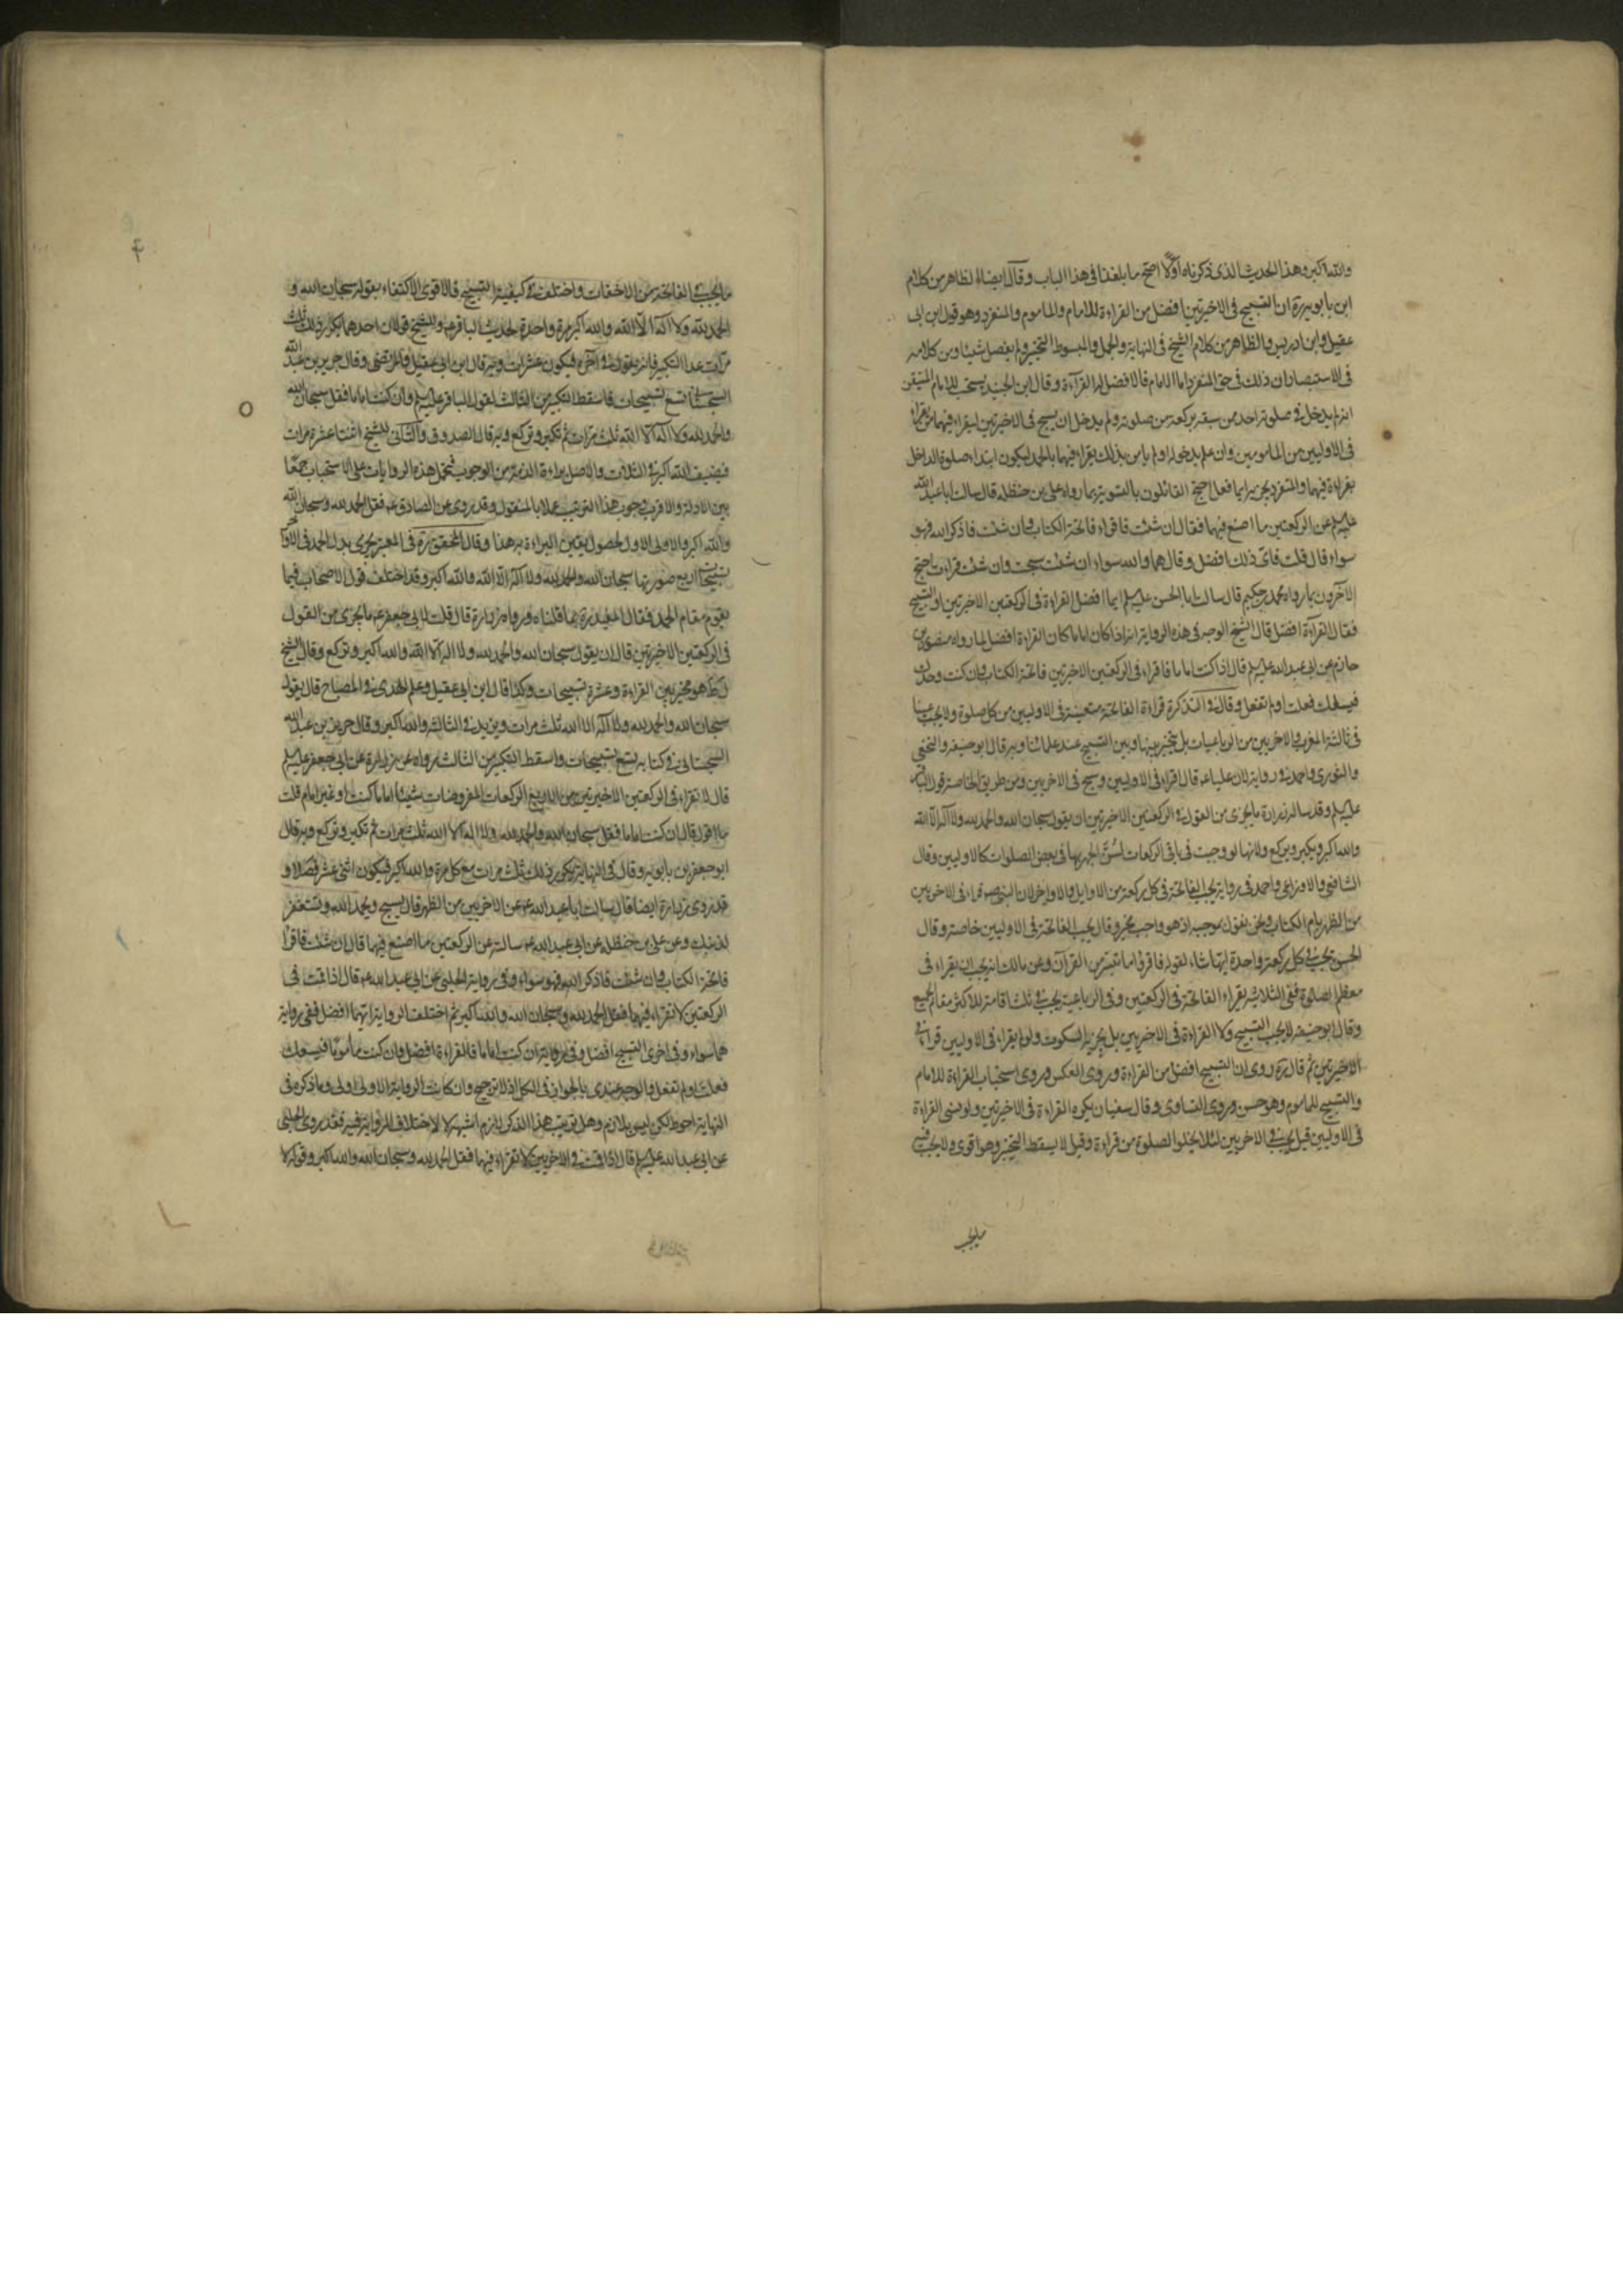 والله اكبر وهذا الحديث الذى ذكرناه اولا اصح ما بلغنا فى هذا الباب وقال ايضا الظاهر من كلام
ابن بابويه ره ان التسبيح فى الاخيرتين افضل من القراءة للامام والماموم والمنفرد وهو قول ابن ابى
عقيل وابن ادريس والظاهر من كلام الشيخ فى النهاية والجمل والمبسوط التخيير ولم يفصل شيئا ومن كلامه
فى الاستبصار ان ذلك فى حق المنفرد اما الامام فالافضل له القرآءة وقال ابن الجنيد يستحب للامام المتيقن
انه لم يدخل فى صلوته احد ممن سبقه بركعة من صلوته ولم يدخل ان يسبح فى الاخيرتين ليقراء فيهما من
فى الاوليين من المامومين وان علم بدخوله او لم يامن بذلك يقراء فيهما بالحمد ليكون ابتداء صلوة الداخل
بقراءة فيهما والمنفرد يجزيه ايما فعل احتج القائلون بالتسوية بما رواه على بن حنظله قال سالت ابا عبد الله
عليه السلم عن الركعتين ما اصنع فيهما فقال ان شئت فاقراء فاتحة الكتاب وان شئت فاذكر الله فهو
سواء قال قلت فاى ذلك افضل وقال هما والله سواء ان شئت سبحت وان شئت قراءت احتج
الآخرون بما رواه محمد بن حكيم قال سالت ابا الحسن عليه السلم ايما افضل القراءة فى الركعتين الاخيرتين او التسبيح
فقال القرآءة افضل قال الشيخ الوجه فى هذه الرواية انه اذا كان اماما كان القراءة افضل لما رواه منصور بن
حازم عن ابى عبد الله عليه السلم قال اذا كنت اماما فاقراء فى الركعتين الاخيرتين فاتحة الكتاب وان كنت وحدك
فيسعك فعلت او لم تفعل وقال فى التذكرة قراءة الفاتحة متعينة فى الاوليين من كل صلوة ولا يجب عينا
فى ثالثة المغرب والاخريين من الرباعيات بل يتخير بينها وبين التسبيح عند علمائنا وبه قال ابو حنيفه والنخعى
والثورى واحمد فى رواية لان عليا عه قال اقراء فى الاوليين وسبح فى الاخريين ومن طريق الخاصة قول الباقر
عليه السلم وقد ساله زرارة ما يجزى من القول فى الركعتين الاخيرتين ان يقول سبحان الله والحمد لله ولا اله الا الله
والله اكبر ويكبر ويركع ولانها لو وجبت فى باقى الركعات لسن الجهر بها فى بعض الصلوات كالاوليين وقال
الشافعى والاوزاعى واحمد فى رواية يجب الفاتحة فى كل ركعة من الاوايل والاواخر لان النبى صه قراء فى الاخريين
من الظهر بام الكتاب ونحن نقول بموجبه اذ هو واجب مخير وقال يجب الفاتحة فى الاوليين خاصة وقال
الحسن تجب فى كل ركعة واحدة ايتها شاء لقوله فاقرؤا ما تيسر من القرآن وعن مالك انه يجب ان يقراء فى
معظم الصلوة ففى الثلاثية يقراء الفاتحة فى الركعتين وفى الرباعية يجب فى ثلث اقامة للاكثر مقام الجميع
وقال ابو حنيفه لا يجب التسبيح ولا القراءة فى الاخريين بل يجزيه السكوت ولو لم يقراء فى الاوليين قراء فى
الاخيرتين ثم قال ره روى ان التسبيح افضل من القراءة وروى العكس وروى استحباب القراءة للامام
والتسبيح للماموم وهو حسن وروى التساوى وقال سفيان يكره القراءة فى الاخيرتين ولو نسى القراءة
فى الاوليين قيل يجب فى الاخريين لئلا يخلو الصلوة من قراءة وقيل لا يسقط التخيير وهو اقوى ولا يجب فيه
ما يجب
ما يجب فى الفاتحة من الاخفات واختلف فى كيفية التسبيح فالاقوى الاكتفاء بقوله سبحان الله و
الحمد لله ولا اله الا الله والله اكبر مرة واحدة لحديث الباقر عه وللشيخ قولان احدهما يكرر ذلك ثلث
مرات عدا التكبير فانه يقوله فى آخره فيكون عشر مرات وبه قال ابن ابى عقيل والمرتضى وقال حريز بن عبد الله
السجستانى تسع تسبيحات فاسقط التكبير من الثالث لقول الباقر عليه السلم وان كنت اماما فقل سبحان الله
والحمد لله ولا اله الا الله ثلث مرات ثم تكبر وتركع وبه قال الصدوق والثانى للشيخ اثنتا عشرة مرات
فيضيف الله اكبر فى الثلاث والاصل براءة الذمة من الوجوب فتحمل هذه الروايات على الاستحباب جمعا
بين الادلة والاقرب وجوب هذا الترتيب عملا بالمنقول وقد روى عن الصادق عه فقل الحمد لله وسبحان الله
والله اكبر والاولى الاول لحصول يقين البراءة به هذا وقال المحقق ره فى المعتبر يجزى بدل الحمد فى الاواخر
تسبيحات اربع صورتها سبحان الله والحمد لله ولا اله الا الله والله اكبر وقد اختلف قول الاصحاب فيما
يقوم مقام الحمد فقال المفيد ره بما قلناه ورواه زرارة قال قلت لابى جعفر عه ما يجزى من القول
فى الركعتين الاخيرتين قال ان يقول سبحان الله والحمد لله ولا اله الا الله والله اكبر وتركع وقال الشيخ
فى ط هو مخير بين القراءة وعشرة تسبيحات وكذا قال ابن ابى عقيل وعلم الهدى فى المصباح قال يقول
سبحان الله والحمد لله ولا اله الا الله ثلث مرات ويزيد فى الثالثة والله اكبر وقال حريز بن عبد الله
السجستانى فى كتابه تسع تسبيحات واسقط التكبير من الثالث رواه عن زرارة عن ابى جعفر عليه السلم
قال لا تقراء فى الركعتين الاخيرتين من الاربع الركعات المفروضات شيئا اماما كنت او غير امام قلت
ما اقول قال ان كنت اماما فقل سبحان الله والحمد لله ولا اله الا الله ثلث مرات ثم تكبر وتركع وبه قال
ابو جعفر بن بابويه وقال فى النهاية يكرر ذلك ثلث مرات مع كل مرة والله اكبر فيكون اثنى عشر فصلا و
قد روى زرارة ايضا قال سالت ابا عبد الله عه عن الاخريين من الظهر قال يسبح ويحمد الله وتستغفر
لذنبك وعن على بن حنظله عن ابى عبد الله عه سالته عن الركعتين ما اصنع فيهما قال ان شئت فاقراء
فاتحة الكتاب وان شئت فاذكر الله فهو سواء وفى رواية الحلبى عن ابى عبد الله عه قال اذا قمت فى
الركعتين لا تقراء فيهما فقل الحمد لله وسبحان الله والله اكبر ثم اختلفت الرواية ايتهما افضل ففى رواية
هما سواء وفى اخرى التسبيح افضل وفى رواية ان كنت اماما فالقراءة افضل وان كنت ماموما فيسعك
فعلت او لم تفعل والوجه عندى بالجواز فى الكل اذ لا ترجيح وان كانت الرواية الاولى اولى وما ذكره فى
النهاية احوط لكن ليس بلازم وهل ترتيب هذا الذكر لازم اشبهه لا لاختلاف الرواية فيه فقد روى الحلبى
عن ابى عبد الله عليه السلم قال اذا قمت فى الاخريين لا تقراء فيهما فقل الحمد لله وسبحان الله والله اكبر وقوله لا